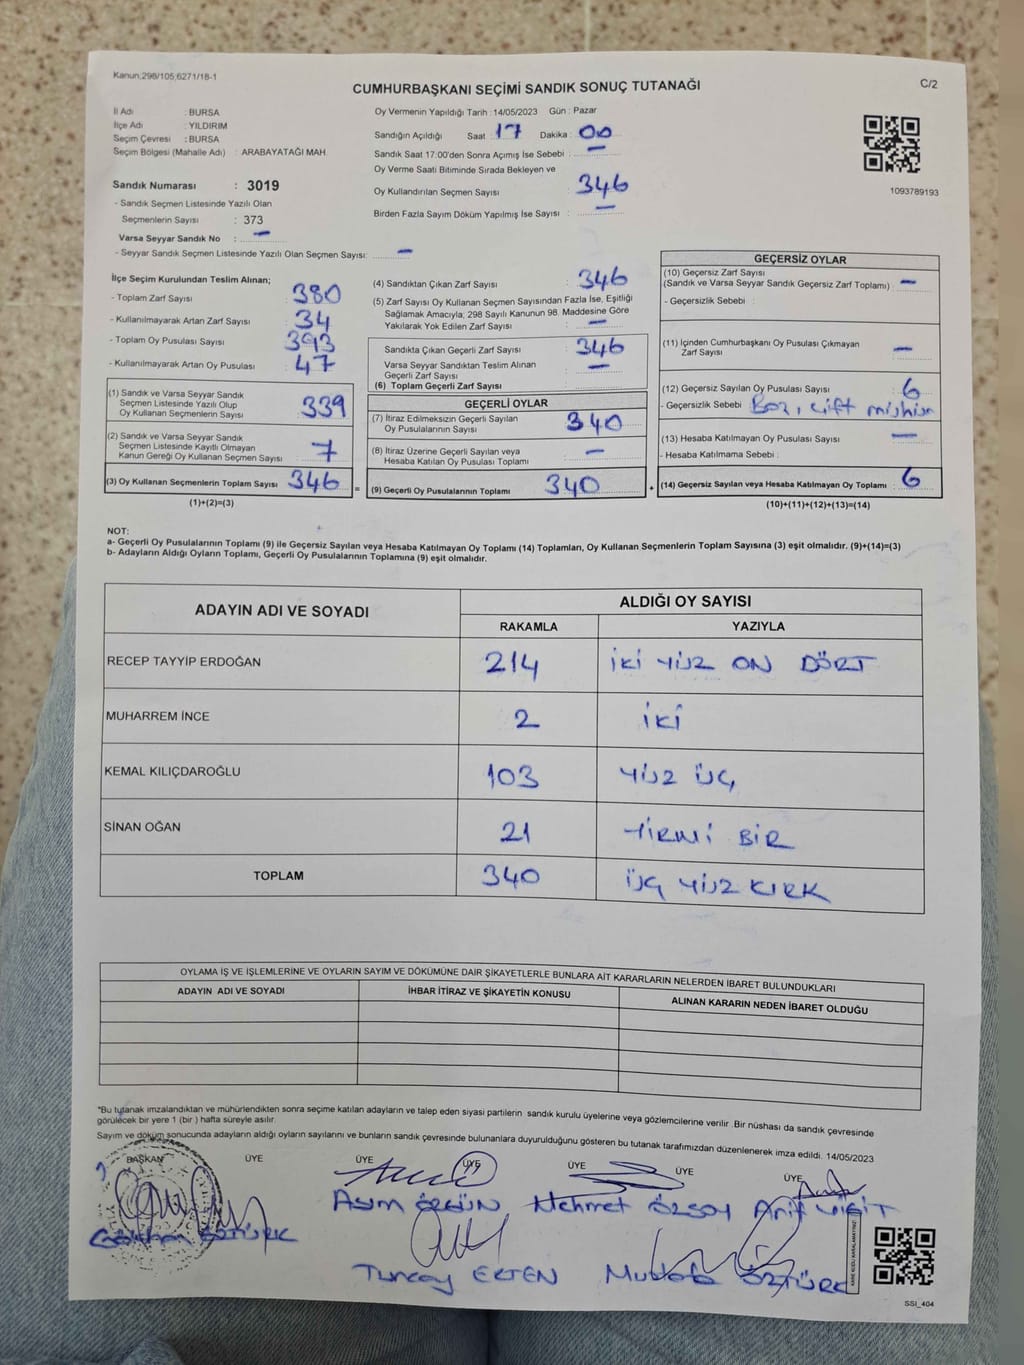 Kanun;298/105,6271/18-1
CUMHURBAŞKANI SEÇİMİ SANDIK SONUÇ TUTANAĞI
C/2
İl Adı : BURSA
İlçe Adı : YILDIRIM
Seçim Çevresi : BURSA
Seçim Bölgesi (Mahalle Adı) : ARABAYATAĞI MAH.
Sandık Numarası : 3019
- Sandık Seçmen Listesinde Yazılı Olan
Seçmenlerin Sayısı : 373
Varsa Seyyar Sandık No : —
- Seyyar Sandık Seçmen Listesinde Yazılı Olan Seçmen Sayısı: —
Oy Vermenin Yapıldığı Tarih : 14/05/2023 Gün : Pazar
Sandığın Açıldığı Saat : 17 Dakika : 00
Sandık Saat 17:00'den Sonra Açımış İse Sebebi : —
Oy Verme Saati Bitiminde Sırada Bekleyen ve
Oy Kullandırılan Seçmen Sayısı : 346
Birden Fazla Sayım Döküm Yapılmış İse Sayısı : —
1093789193
İlçe Seçim Kurulundan Teslim Alınan;
- Toplam Zarf Sayısı : 380
- Kullanılmayarak Artan Zarf Sayısı : 34
- Toplam Oy Pusulası Sayısı : 393
- Kullanılmayarak Artan Oy Pusulası : 47
(1) Sandık ve Varsa Seyyar Sandık
Seçmen Listesinde Yazılı Olup
Oy Kullanan Seçmenlerin Sayısı : 339
(2) Sandık ve Varsa Seyyar Sandık
Seçmen Listesinde Kayıtlı Olmayan
Kanun Gereği Oy Kullanan Seçmen Sayısı : 7
(3) Oy Kullanan Seçmenlerin Toplam Sayısı : 346
(1)+(2)=(3)
(4) Sandıktan Çıkan Zarf Sayısı : 346
(5) Zarf Sayısı Oy Kullanan Seçmen Sayısından Fazla İse, Eşitliği
Sağlamak Amacıyla; 298 Sayılı Kanunun 98. Maddesine Göre
Yakılarak Yok Edilen Zarf Sayısı : —
Sandıkta Çıkan Geçerli Zarf Sayısı : 346
Varsa Seyyar Sandıktan Teslim Alınan
Geçerli Zarf Sayısı : —
(6) Toplam Geçerli Zarf Sayısı :
GEÇERLİ OYLAR
(7) İtiraz Edilmeksizin Geçerli Sayılan
Oy Pusulalarının Sayısı : 340
(8) İtiraz Üzerine Geçerli Sayılan veya
Hesaba Katılan Oy Pusulası Toplamı : —
= (9) Geçerli Oy Pusulalarının Toplamı : 340 +
GEÇERSİZ OYLAR
(10) Geçersiz Zarf Sayısı
(Sandık ve Varsa Seyyar Sandık Geçersiz Zarf Toplamı) : —
- Geçersizlik Sebebi :
(11) İçinden Cumhurbaşkanı Oy Pusulası Çıkmayan
Zarf Sayısı : —
(12) Geçersiz Sayılan Oy Pusulası Sayısı : 6
- Geçersizlik Sebebi : çift
(13) Hesaba Katılmayan Oy Pusulası Sayısı : —
- Hesaba Katılmama Sebebi :
(14) Geçersiz Sayılan veya Hesaba Katılmayan Oy Toplamı : 6
(10)+(11)+(12)+(13)=(14)
NOT:
a- Geçerli Oy Pusulalarının Toplamı (9) ile Geçersiz Sayılan veya Hesaba Katılmayan Oy Toplamı (14) Toplamları, Oy Kullanan Seçmenlerin Toplam Sayısına (3) eşit olmalıdır. (9)+(14)=(3)
b- Adayların Aldığı Oyların Toplamı, Geçerli Oy Pusulalarının Toplamına (9) eşit olmalıdır.
ADAYIN ADI VE SOYADI ALDIĞI OY SAYISI
RAKAMLA YAZIYLA
RECEP TAYYİP ERDOĞAN 214 İKİ YÜZ ON DÖRT
MUHARREM İNCE 2 İKİ
KEMAL KILIÇDAROĞLU 103 YÜZ ÜÇ
SİNAN OĞAN 21 YİRMİ BİR
TOPLAM 340 ÜÇ YÜZ KIRK
OYLAMA İŞ VE İŞLEMLERİNE VE OYLARIN SAYIM VE DÖKÜMÜNE DAİR ŞİKAYETLERLE BUNLARA AİT KARARLARIN NELERDEN İBARET BULUNDUKLARI
ADAYIN ADI VE SOYADI İHBAR İTİRAZ VE ŞİKAYETİN KONUSU ALINAN KARARIN NEDEN İBARET OLDUĞU
*Bu tutanak imzalandıktan ve mühürlendikten sonra seçime katılan adayların ve talep eden siyasi partilerin sandık kurulu üyelerine veya gözlemcilerine verilir .Bir nüshası da sandık çevresinde
görülecek bir yere 1 (bir ) hafta süreyle asılır.
Sayım ve döküm sonucunda adayların aldığı oyların sayılarını ve bunların sandık çevresinde bulunanlara duyurulduğunu gösteren bu tutanak tarafımızdan düzenlenerek imza edildi. 14/05/2023
BAŞKAN ÜYE ÜYE ÜYE ÜYE ÜYE ÜYE
Asım ÖZGÜN Mehmet ÖZSOY Arif YİĞİT
Gökhan ÖZTÜRK
Turcay ERTEN Mustafa ÖZTÜRK
SSI_404